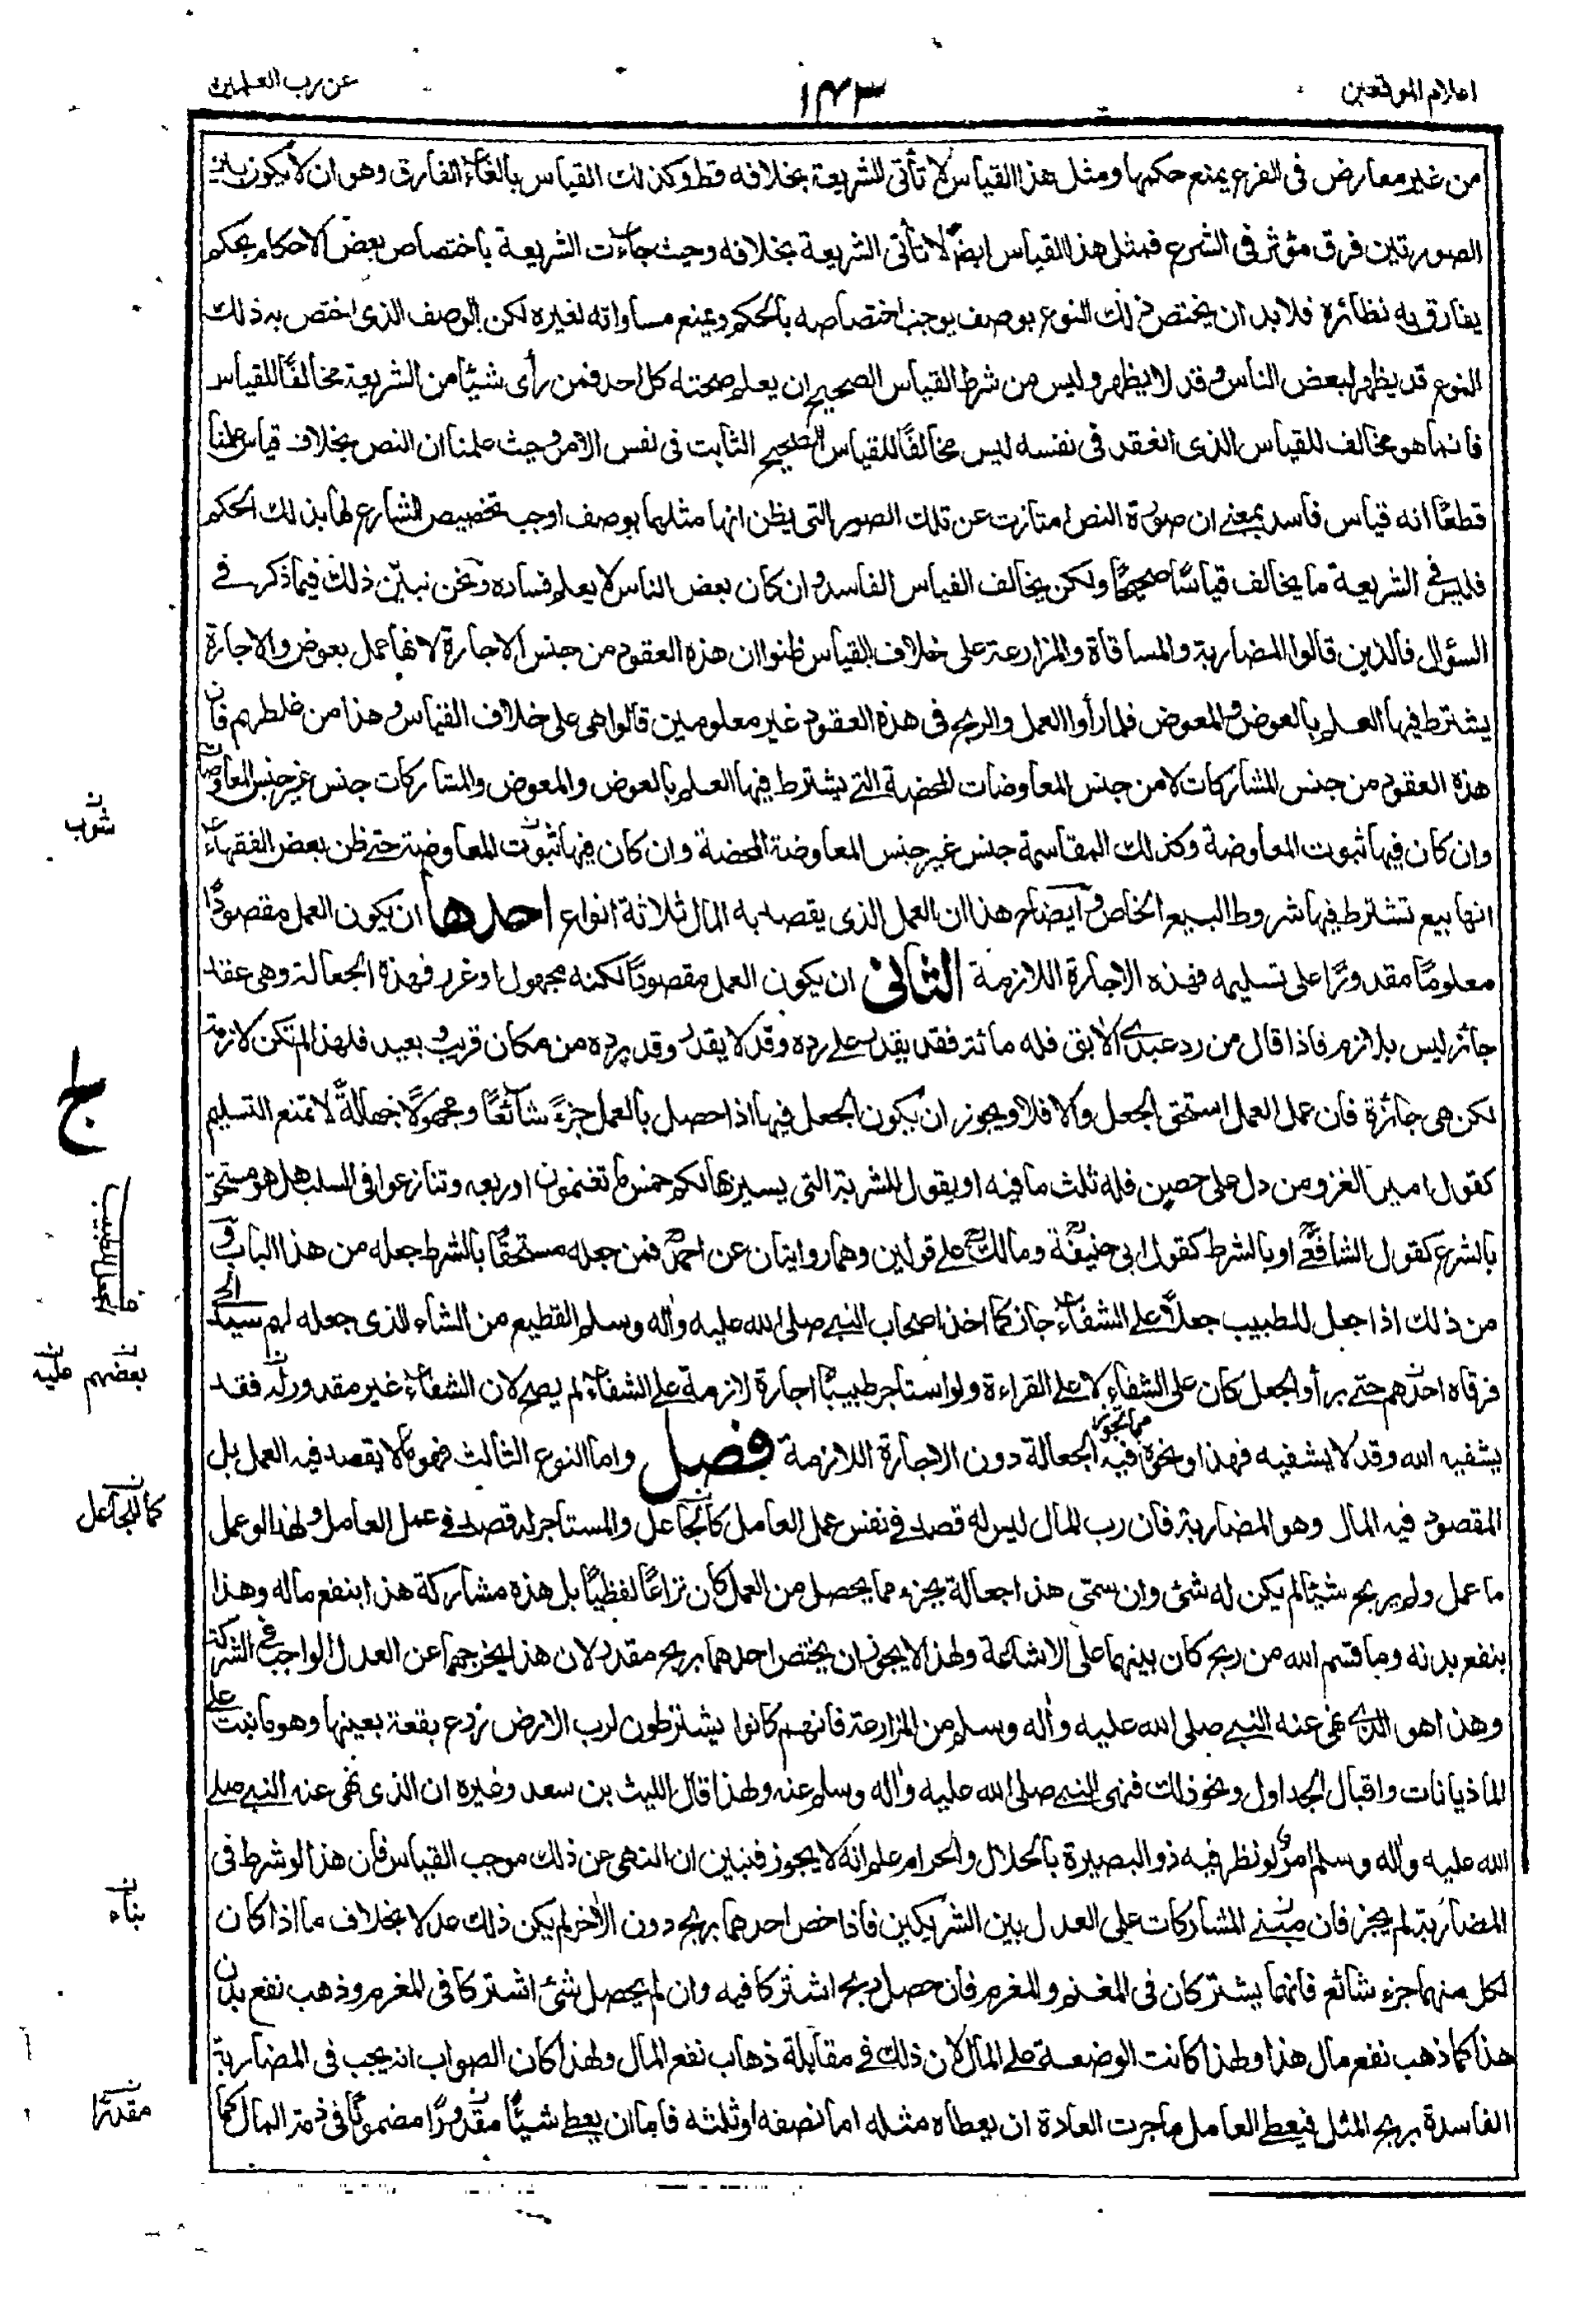 اعلام الموقعین
۱۴۳
عن رب العلمین
من غیر معارض فی الفرع یمنع حکمها ومثل هذا القیاس لا تأتی الشریعة بخلافه قط وکذلك القیاس بالغاء الفارق وهو ان لا یکون بین
الصورتین فرق مؤثر فی الشرع فمثل هذا القیاس ایضًا لا تأتی الشریعة بخلافه وحیث جاءت الشریعة باختصاص بعض الاحکام بحکم
یفارق به نظائره فلا بد ان یختص ذلك النوع بوصف یوجب اختصاصه بالحکم ویمنع مساواته لغیره لکن الوصف الذی اختص به ذلك
النوع قد یظهر لبعض الناس وقد لا یظهر ولیس من شرط القیاس الصحیح ان یعلم صحته کل احد فمن رأی شیئًا من الشریعة مخالفًا للقیاس
فانما هو مخالف للقیاس الذی انعقد فی نفسه لیس مخالفًا للقیاس الصحیح الثابت فی نفس الامر وحیث علمنا ان النص بخلاف قیاس علمنا
قطعًا انه قیاس فاسد بمعنے ان صورة النص امتازت عن تلك الصور التی یظن انها مثلها بوصف اوجب تخصیص الشارع لها بذلك الحکم
فلیس فی الشریعة ما یخالف قیاسًا صحیحًا ولکن یخالف القیاس الفاسد وان کان بعض الناس لا یعلم فساده ونحن نبیّن ذلك فیما ذکر فے
السؤال فالذین قالوا المضاربة والمساقاة والمزارعة علی خلاف القیاس ظنوا ان هذه العقود من جنس الاجارة لانها عمل بعوض والاجارة
یشترط فیها العلم بالعوض والمعوض فلما رأوا العمل والربح فی هذه العقود غیر معلومین قالوا هی علی خلاف القیاس وهذا من غلطهم فان
هذه العقود من جنس المشارکات لا من جنس المعاوضات المحضة التے یشترط فیها العلم بالعوض والمعوض والمشارکات جنس غیر جنس المعاوضات
وان کان فیها ثبوت المعاوضة وکذلك المقاسمة جنس غیر جنس المعاوضة المحضة وان کان فیها ثبوت المعاوضة حتے ظن بعض الفقهاء
انها بیع تشترط فیها شروط البیع الخاص وایضاح هذا ان العمل الذی یقصد به المال ثلاثة انواع احدها ان یکون العمل مقصودًا
معلومًا مقدورًا علی تسلیمه فهذه الاجارة اللازمة الثانی ان یکون العمل مقصودًا لکنه مجهول او غرر فهذه الجعالة وهی عقد
جائز لیس بلازم فاذا قال من رد عبدی الآبق فله مائة فقد یقدر علے رده وقد لا یقدر وقد یرده من مکان قریب وبعید فلهذا لم تکن لازمة
لکن هی جائزة فان عمل العمل استحق الجعل والا فلا ویجوز ان یکون الجعل فیها اذا حصل بالعمل جزءً شائعًا ومجهولًا جهالةً لا تمنع التسلیم
کقول امیر الغزو من دل علی حصن فله ثلث ما فیه او یقول للسریة التی یسیرها لکم خمس ما تغنمون او ربعه وتنازعوا فی السلب هل هو مستحق
بالشرع کقول الشافعیؒ او بالشرط کقول ابی حنیفةؒ ومالكؒ علے قولین وهما روایتان عن احمدؒ فمن جعله مستحقًا بالشرط جعله من هذا الباب و
من ذلك اذا جعل للطبیب جعلًا علے الشفاء جاز کما اخذ اصحاب النبے صلی الله علیه وآله وسلم القطیع من الشاء الذی جعله لهم سید الحی
فرقاه احدهم حتے برأ والجعل کان علی الشفاء لا علے القراءة ولو استاجر طبیبًا اجارة لازمة علے الشفاء لم یصح لان الشفاء غیر مقدور له فقد
یشفیه الله وقد لا یشفیه فهذا ونحوه مما تجوز فیه الجعالة دون الاجارة اللازمة فصل واما النوع الثالث فهو ما لا یقصد فیه العمل بل
المقصود فیه المال وهو المضاربة فان رب المال لیس له قصد فے نفس عمل العامل کالجاعل والمستاجر له قصد فے عمل العامل ولهذا لو عمل
ما عمل ولم یربح شیئًا لم یکن له شئ وان سمّی هذا جعالة بجزء مما یحصل من العمل کان نزاعًا لفظیًا بل هذه مشارکة هذا بنفع ماله وهذا
بنفع بدنه وما قسم الله من ربح کان بینهما علی الاشاعة ولهذا لا یجوز ان یختص احدهما بربح مقدر لان هذا یخرجهما عن العدل الواجب فی الشرکة
وهذا هو الذی نهی عنه النبے صلی الله علیه وآله وسلم من المزارعة فانهم کانوا یشترطون لرب الارض زرع بقعة بعینها وهو ما نبت علے
الماذیانات واقبال الجداول ونحو ذلك فنهی النبے صلی الله علیه وآله وسلم عنه ولهذا قال اللیث بن سعد وغیره ان الذی نهی عنه النبے صلے
الله علیه وآله وسلم امر لو نظر فیه ذو البصیرة بالحلال والحرام علم انه لا یجوز فتبین ان النهی عن ذلك موجب القیاس فان هذا لو شرط فی
المضاربة لم یجز فان مبنے المشارکات علی العدل بین الشریکین فاذا خص احدهما بربح دون الآخر لم یکن ذلك عدلا بخلاف ما اذا کان
لکل منهما جزء شائع فانهما یشترکان فی المغنم والمغرم فان حصل ربح اشترکا فیه وان لم یحصل شئ اشترکا فی المغرم وذهب نفع بدن
هذا کما ذهب نفع مال هذا ولهذا کانت الوضیعة علے المال لان ذلك فے مقابلة ذهاب نفع المال ولهذا کان الصواب انه یجب فی المضاربة
الفاسدة بربح المثل فیعطے العامل ما جرت العادة ان یعطاه مثله اما نصفه او ثلثه فاما ان یعطے شیئًا مقدورًا مضمونًا فی ذمة المال کما
شوب
الجعل الطبیب
بعضهم علیه
کالجاعل
بناء
مقدرًا